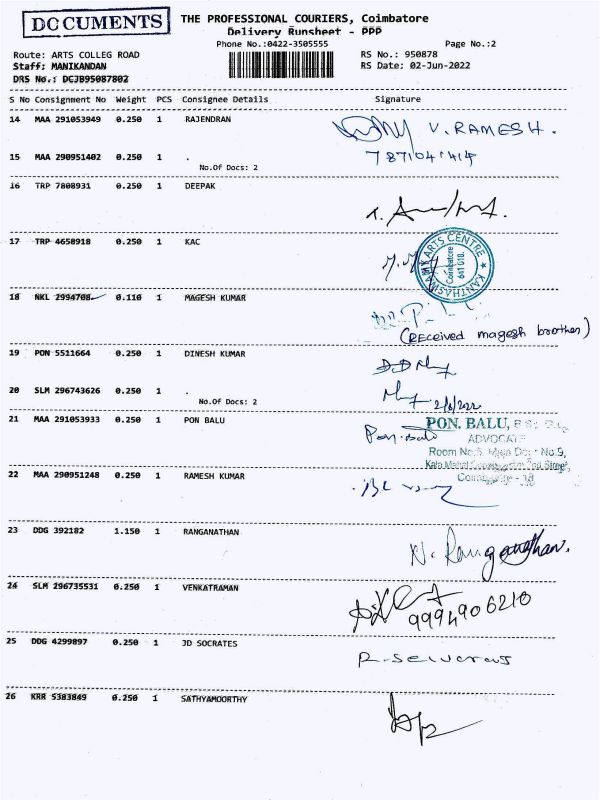 DOCUMENTS
THE PROFESSIONAL COURIERS, Coimbatore
Delivery Runsheet - PPP
Phone No.:0422-3505555 Page No.:2
Route: ARTS COLLEG ROAD RS No.: 950878
Staff: MANIKANDAN RS Date: 02-Jun-2022
DRS No.: DCJB95087802
S No Consignment No Weight PCS Consignee Details Signature
14 MAA 291053949 0.250 1 RAJENDRAN V. RAMESH.
15 MAA 290951402 0.250 1 .
No.Of Docs: 2
16 TRP 7808931 0.250 1 DEEPAK
17 TRP 4658918 0.250 1 KAC
ARTS CENTRE
Coimbatore
641 018.
18 NKL 2994708 0.110 1 MAGESH KUMAR
(RECEIVED magesh brother)
19 PON 5511664 0.250 1 DINESH KUMAR
20 SLM 296743626 0.250 1 .
No.Of Docs: 2 2/6/2022
21 MAA 291053933 0.250 1 PON BALU Pon. Balu PON. BALU,
ADVOCATE
Room No.5, No.9,
22 MAA 290951248 0.250 1 RAMESH KUMAR
23 DDG 392182 1.150 1 RANGANATHAN N. Ranganathan.
24 SLM 296735531 0.250 1 VENKATRAMAN
9994906210
25 DDG 4299897 0.250 1 JD SOCRATES
R. Selvaraj
26 KRR 5383849 0.250 1 SATHYAMOORTHY